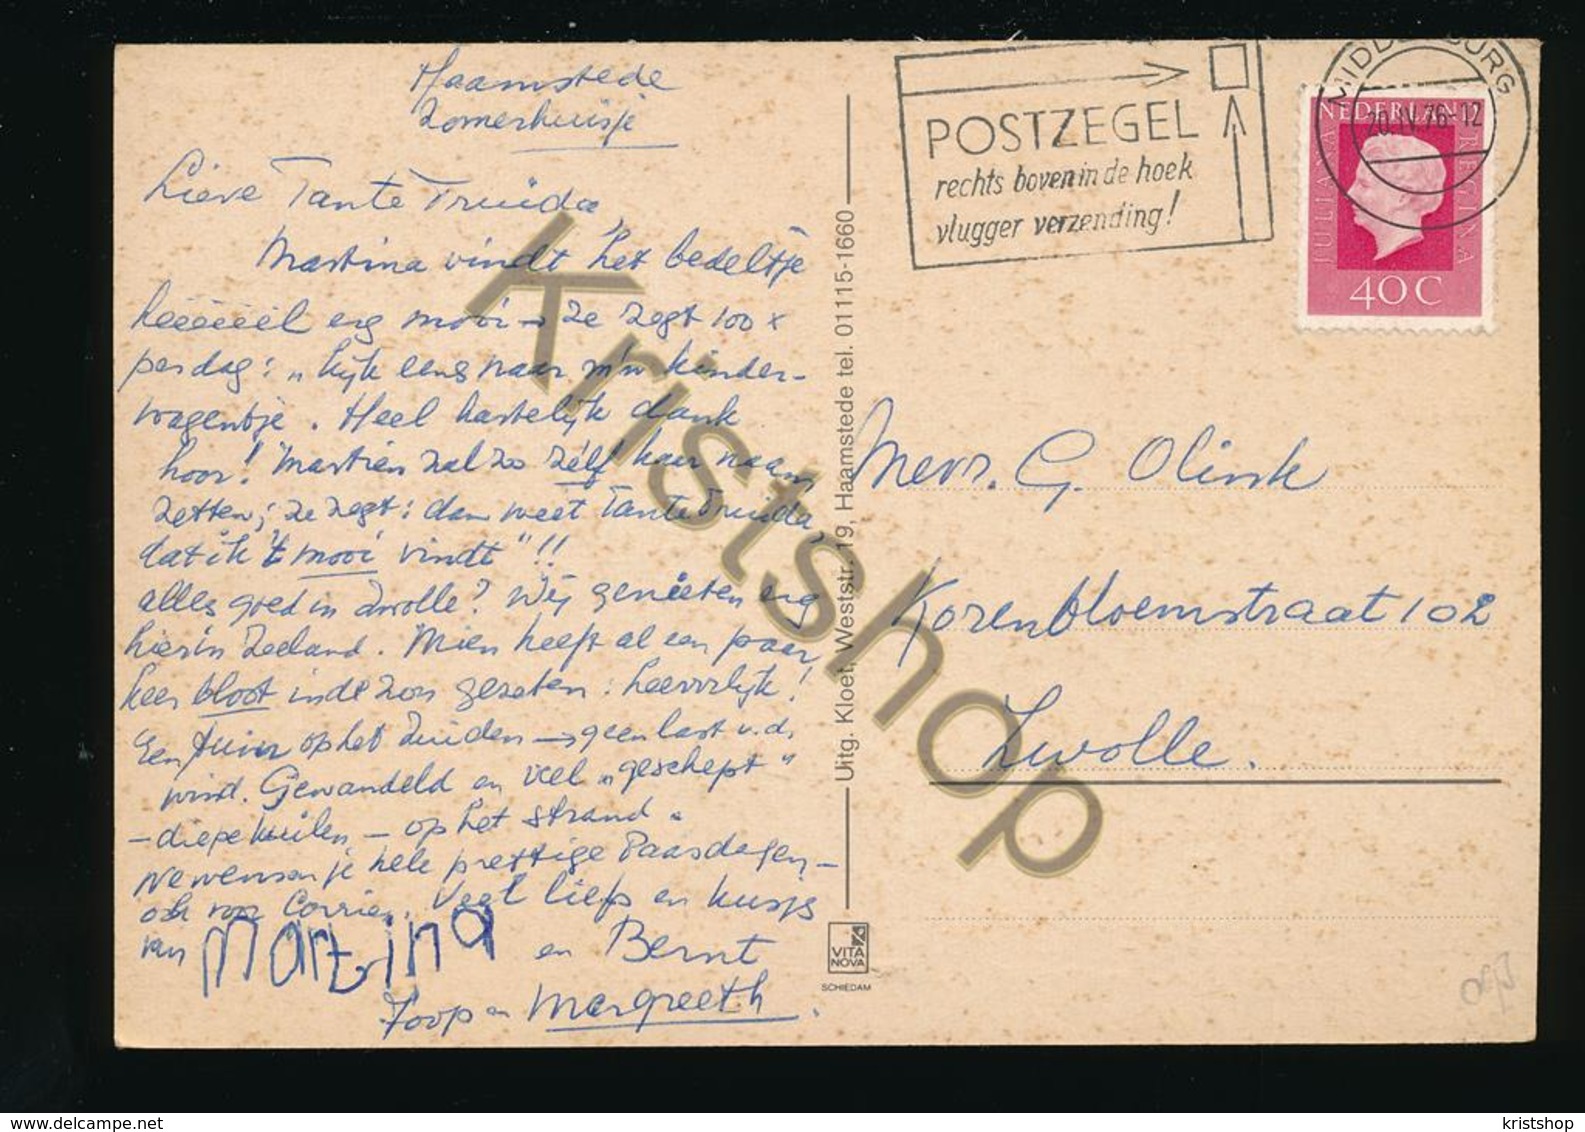 Haamstede
Zomerhuisje
Lieve Tante Truida,
Martina vindt het bedeltje
hééééél erg mooi → ze zegt 100 x
per dag: „kijk eens naar m'n kinder-
wagentje. Heel hartelijk dank
hoor! Martien zal zo zélf haar naam
zetten; ze zegt: dan weet Tante Truida,
dat ik 't mooi vindt"!!
alles goed in Zwolle? Wij genieten erg
hier in Zeeland. Mien heeft al een paar
keer bloot in de zon gezeten: heerrrlijk!
Een tuin op het Zuiden → geen last v.d.
wind. Gewandeld en veel „geschept"
- diepe kuilen - op het strand.
We wensen je hele prettige Paasdagen -
ook voor Corrie. Veel liefs en kusjes
van Martina en Bernt
Joop en Margreeth.
Uitg. Kloet, Weststr. 19, Haamstede tel. 01115-1660
VITA
NOVA
SCHIEDAM
POSTZEGEL
rechts boven in de hoek
vlugger verzending!
MIDDELBURG
20.IV.76-12
NEDERLAND
JULIANA
REGINA
40 C
Mevr. G. Olink
Korenbloemstraat 102
Zwolle.
Kristshop
delcampe.net
kristshop